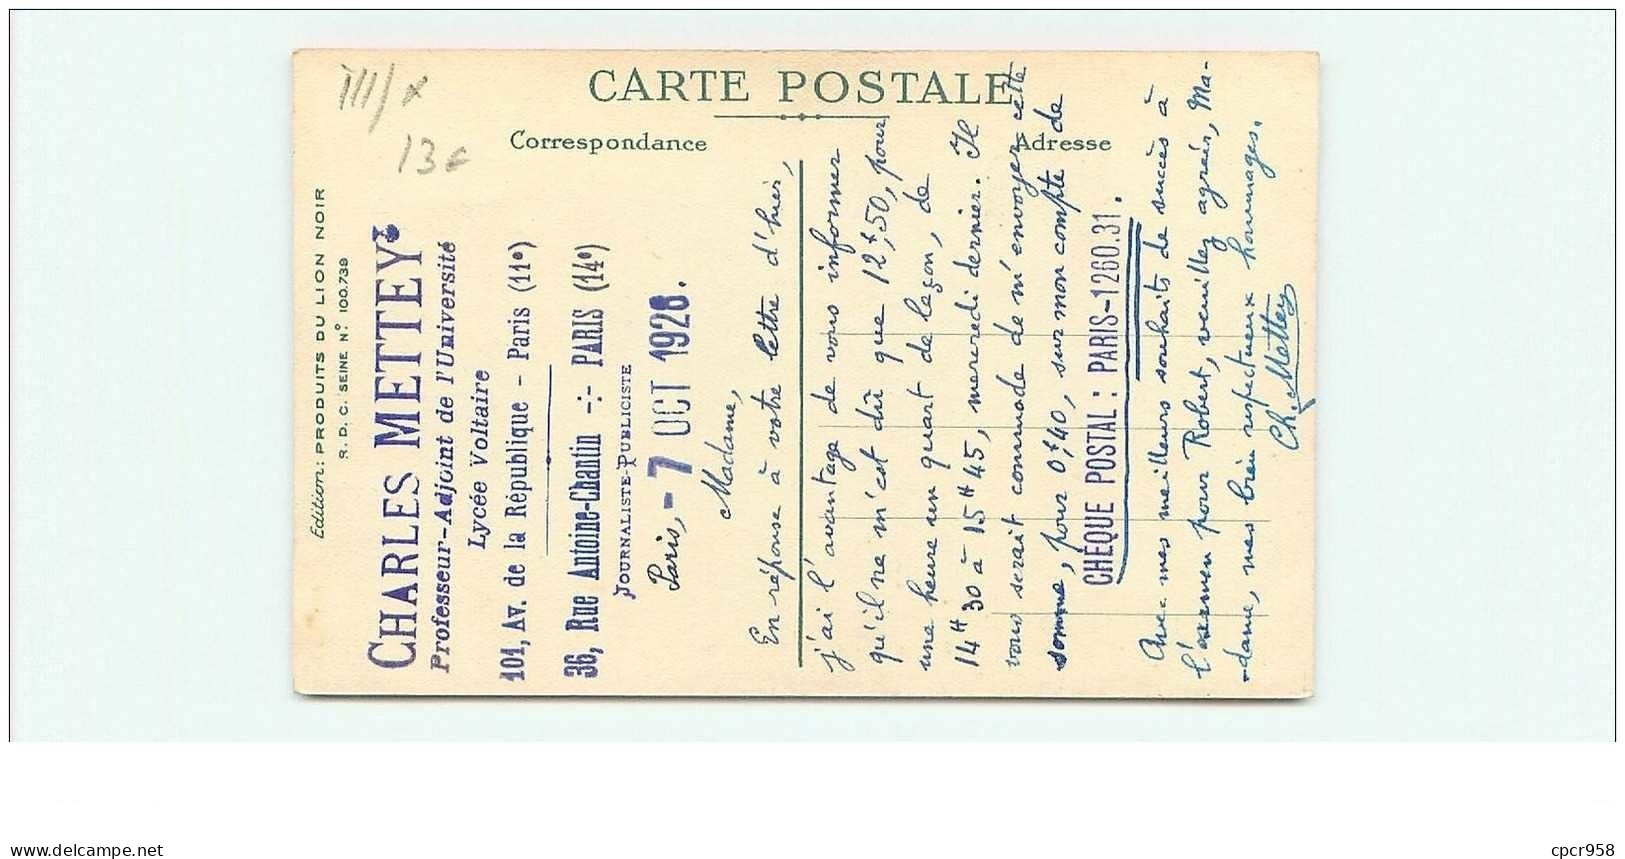 CARTE POSTALE
Correspondance
Adresse
III/x
13€
Edition: PRODUITS DU LION NOIR
R. D. C. SEINE N° 100.739
CHARLES METTEY
Professeur-Adjoint de l'Université
Lycée Voltaire
101, Av. de la République - Paris (11e)
36, Rue Antoine-Chantin -:- PARIS (14e)
JOURNALISTE-PUBLICISTE
Paris, - 7 OCT 1928.
Madame,
En réponse à votre lettre d'hier,
j'ai l'avantage de vous informer
qu'il ne m'est dû que 12f,50, pour
une heure un quart de leçon, de
14H30 à 15H45, mercredi dernier. Il
vous serait commode de m'envoyer cette
somme, pour 0f40, sur mon compte de
CHÈQUE POSTAL : PARIS-1260.31.
Avec mes meilleurs souhaits de succès à
l'examen pour Robert, veuillez agréer, Ma-
-dame, mes bien respectueux hommages.
Ch. Mettey
delcampe.net
cpcr958